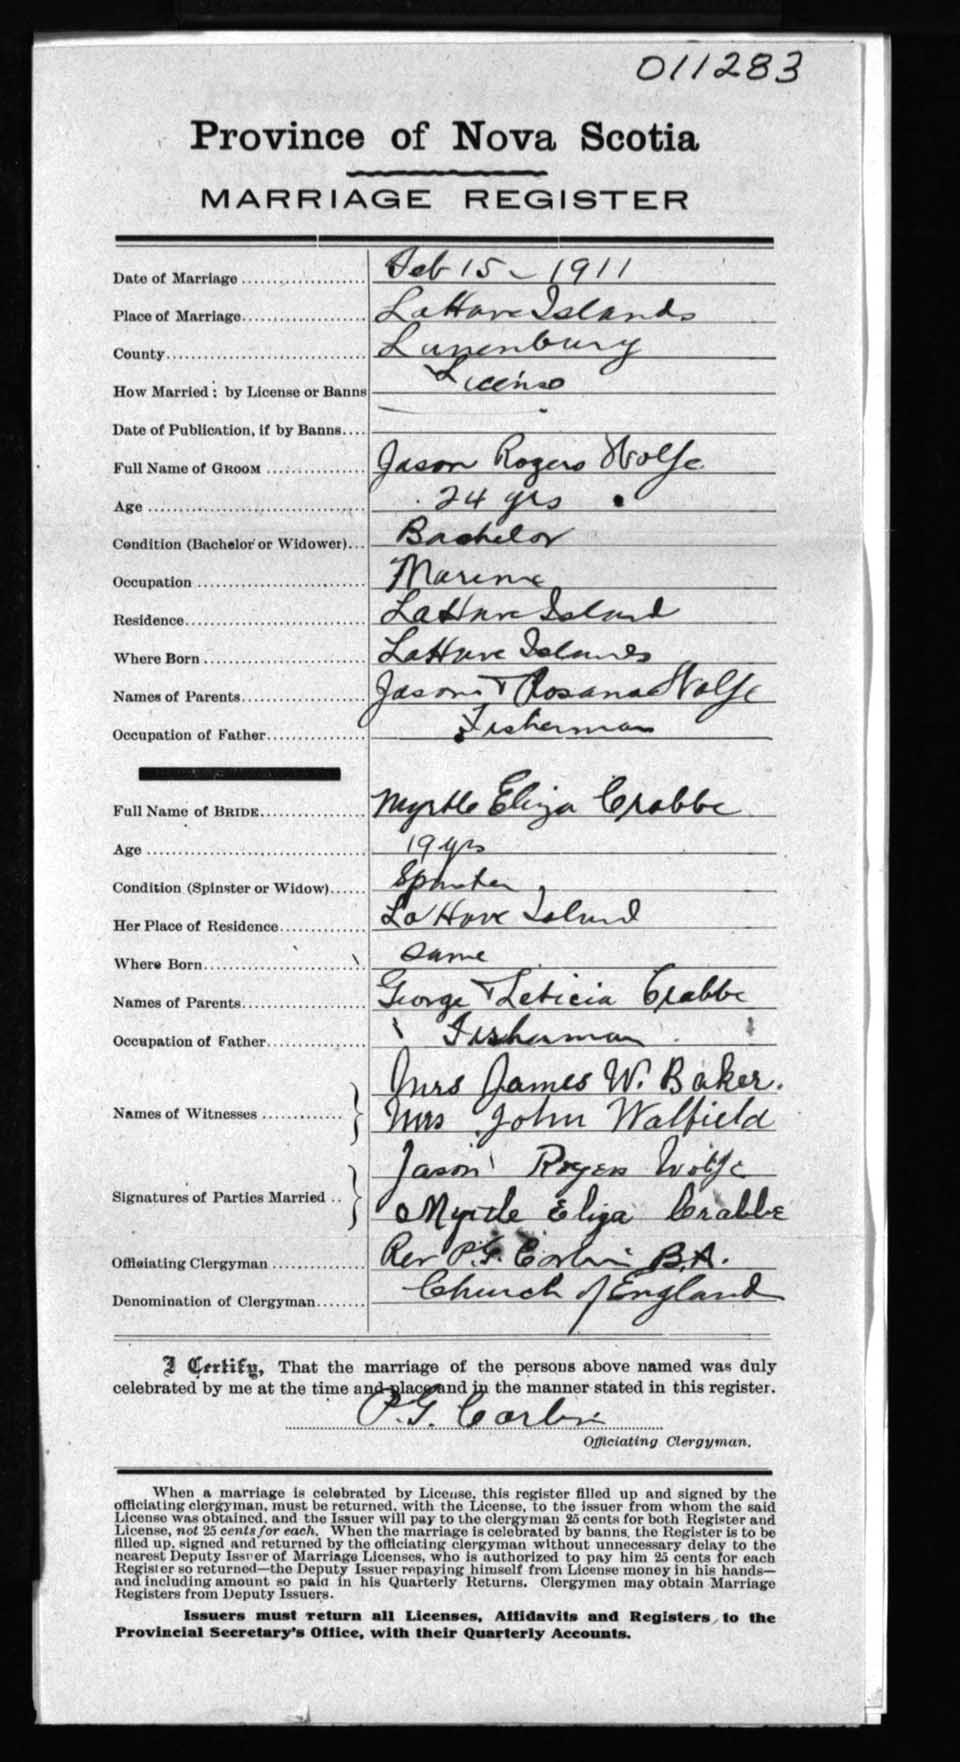 011283
Province of Nova Scotia
MARRIAGE REGISTER
Date of Marriage Feb 15 - 1911
Place of Marriage LaHave Islands
County Lunenburg
How Married: by License or Banns License
Date of Publication, if by Banns
Full Name of GROOM Jason Rogers Wolfe
Age 24 yrs
Condition (Bachelor or Widower) Bachelor
Occupation Marine
Residence LaHave Island
Where Born LaHave Islands
Names of Parents Jason + Rosana Wolfe
Occupation of Father Fisherman
Full Name of BRIDE Myrtle Eliza Crabbe
Age 19 yrs
Condition (Spinster or Widow) Spinster
Her Place of Residence LaHave Island
Where Born Same
Names of Parents George + Leticia Crabbe
Occupation of Father Fisherman
Mrs James W. Baker.
Names of Witnesses Mrs John Walfield
Jason Rogers Wolfe
Signatures of Parties Married Myrtle Eliza Crabbe
Officiating Clergyman Rev P.G. Corbin B.A.
Denomination of Clergyman Church of England
I Certify, That the marriage of the persons above named was duly
celebrated by me at the time and place and in the manner stated in this register.
P.G. Corbin
Officiating Clergyman.
When a marriage is celebrated by License, this register filled up and signed by the
officiating clergyman, must be returned, with the License, to the issuer from whom the said
License was obtained, and the Issuer will pay to the clergyman 25 cents for both Register and
License, not 25 cents for each. When the marriage is celebrated by banns, the Register is to be
filled up, signed and returned by the officiating clergyman without unnecessary delay to the
nearest Deputy Issuer of Marriage Licenses, who is authorized to pay him 25 cents for each
Register so returned—the Deputy Issuer repaying himself from License money in his hands—
and including amount so paid in his Quarterly Returns. Clergymen may obtain Marriage
Registers from Deputy Issuers.
Issuers must return all Licenses, Affidavits and Registers, to the
Provincial Secretary's Office, with their Quarterly Accounts.